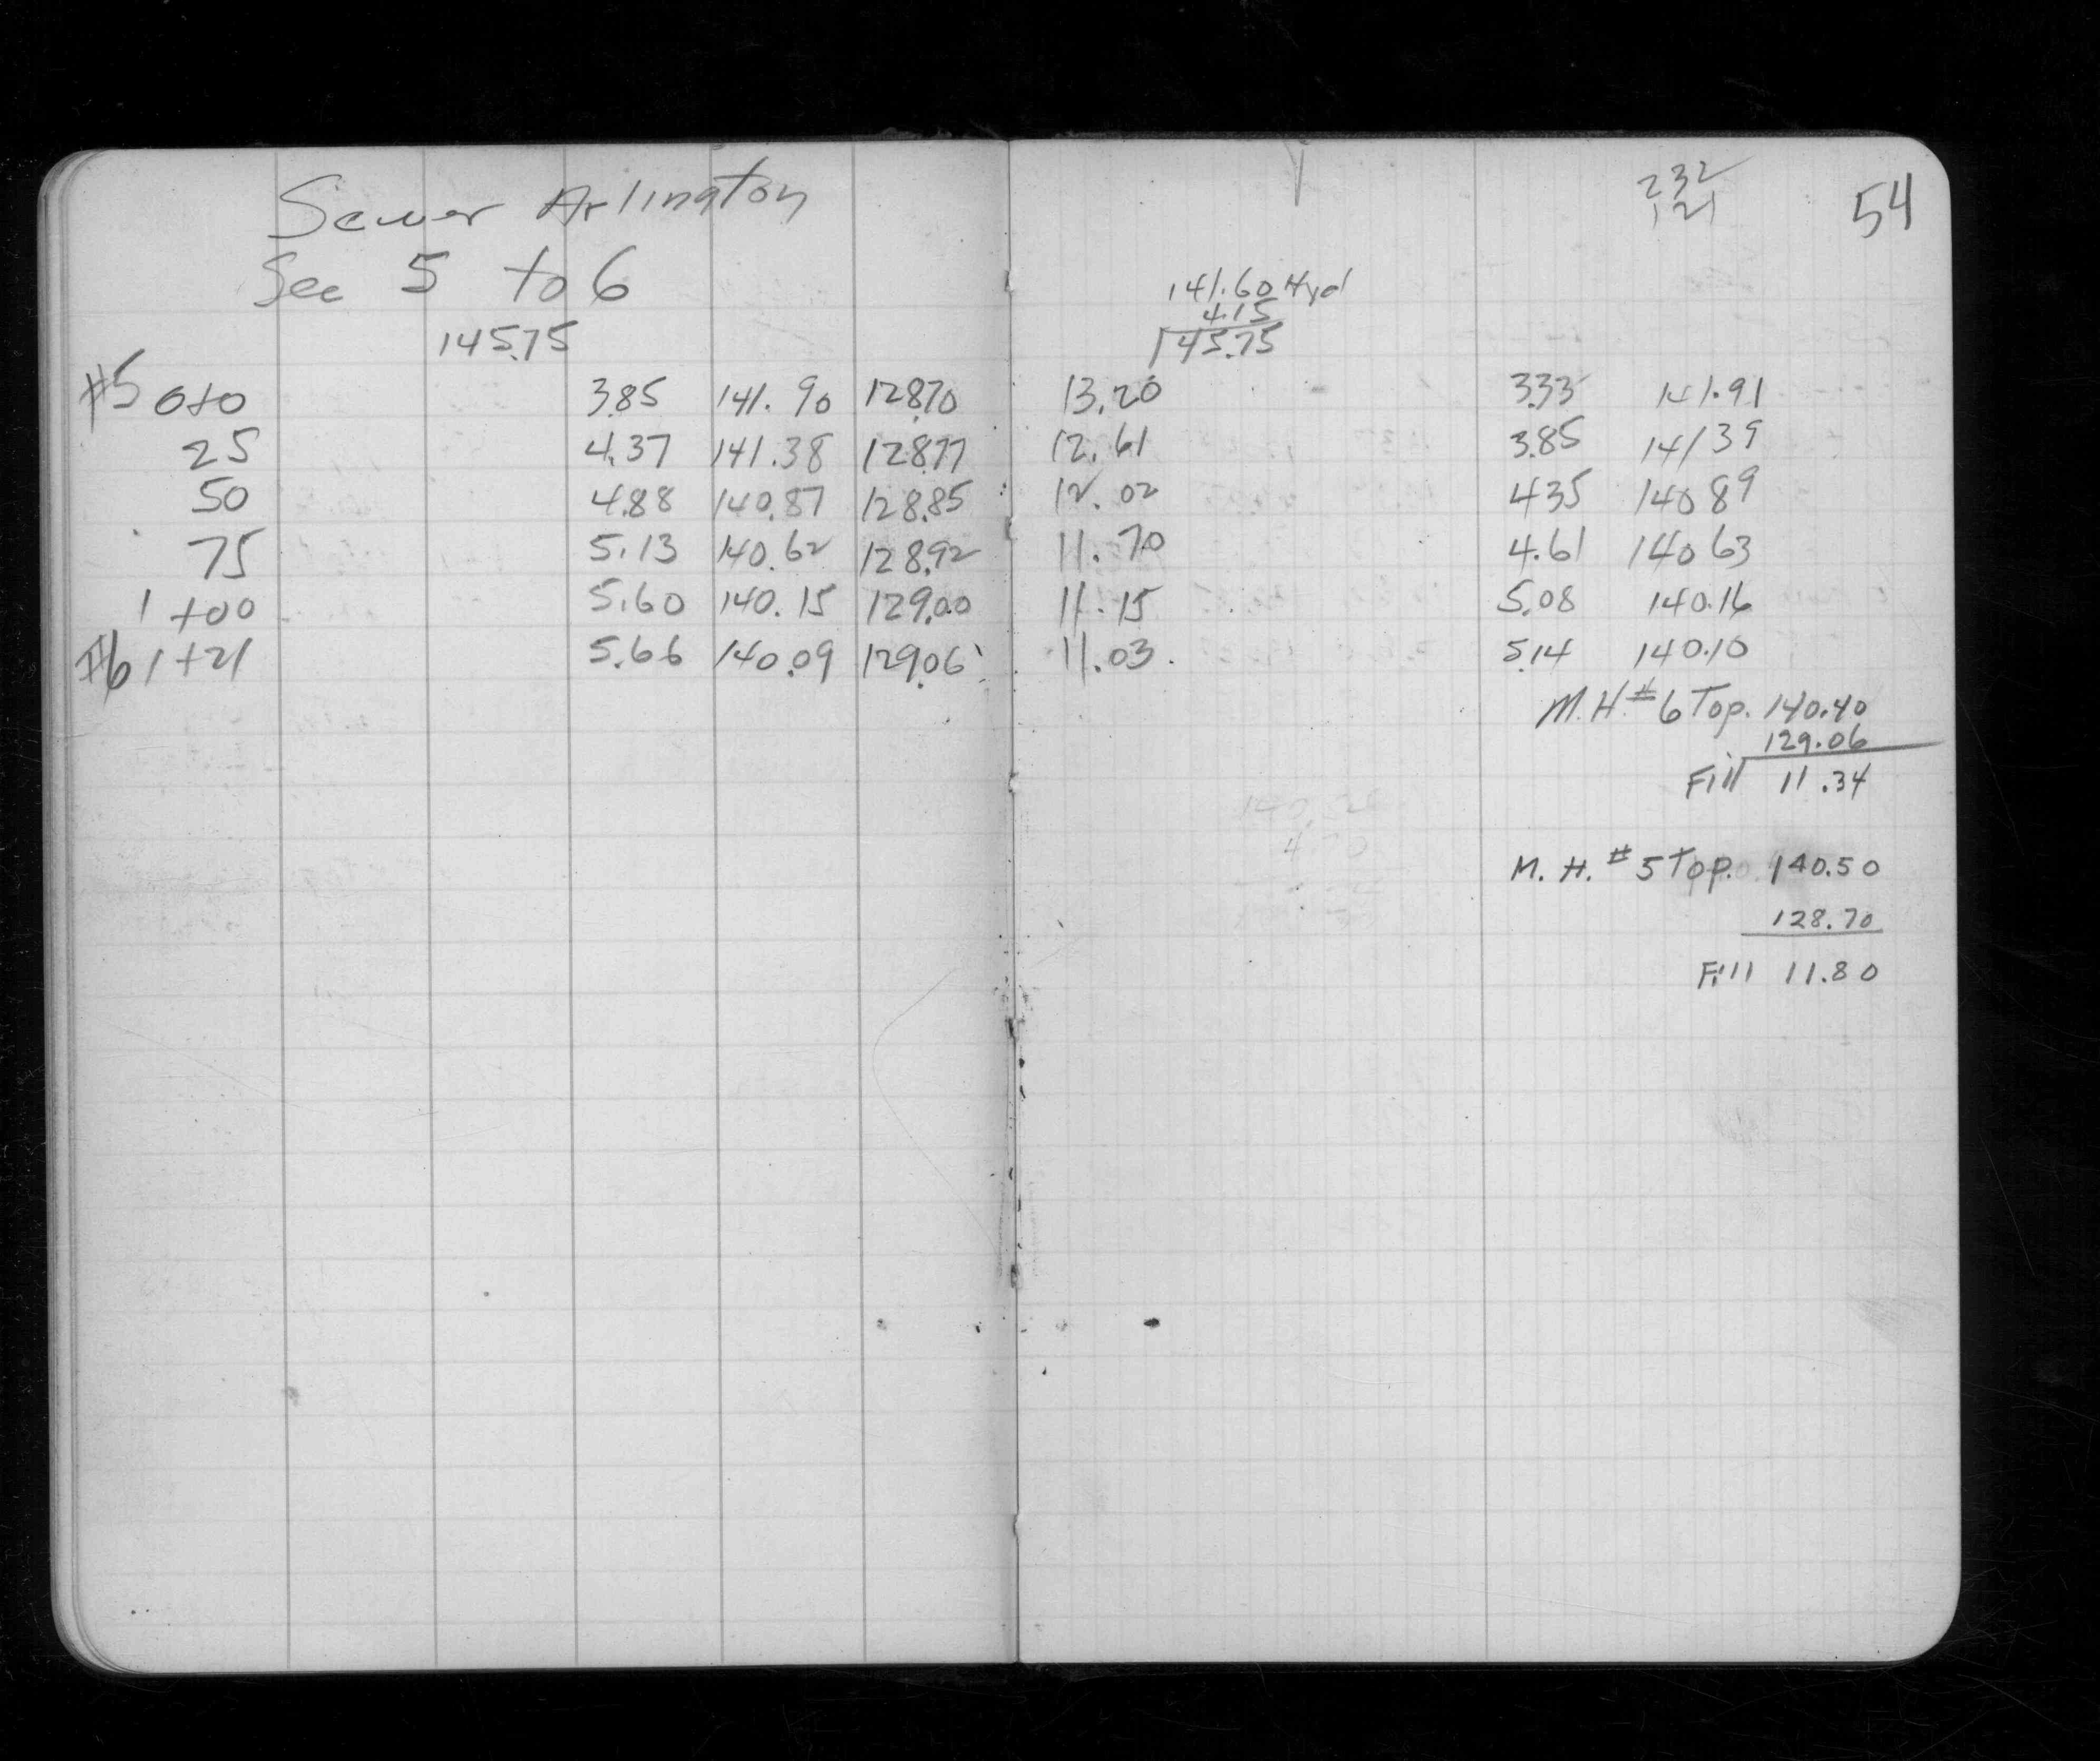 Sewer Arlington
Sec 5 to 6
145.75
#5 0+0 3.85 141.90 128.70
25 4.37 141.38 128.77
50 4.88 140.87 128.85
75 5.13 140.62 128.92
1+00 5.60 140.15 129.00
#6 1+21 5.66 140.09 129.06
232
121
54
141.60 Hyd
4.15
145.75
13.20 3.33 141.91
12.61 3.85 14139
12.02 435 14089
11.70 4.61 14063
11.15 5.08 140.16
11.03. 5.14 140.10
M.H. #6 Top. 140.40
129.06
Fill 11.34
M. H. #5 Top. 140.50
128.70
Fill 11.80